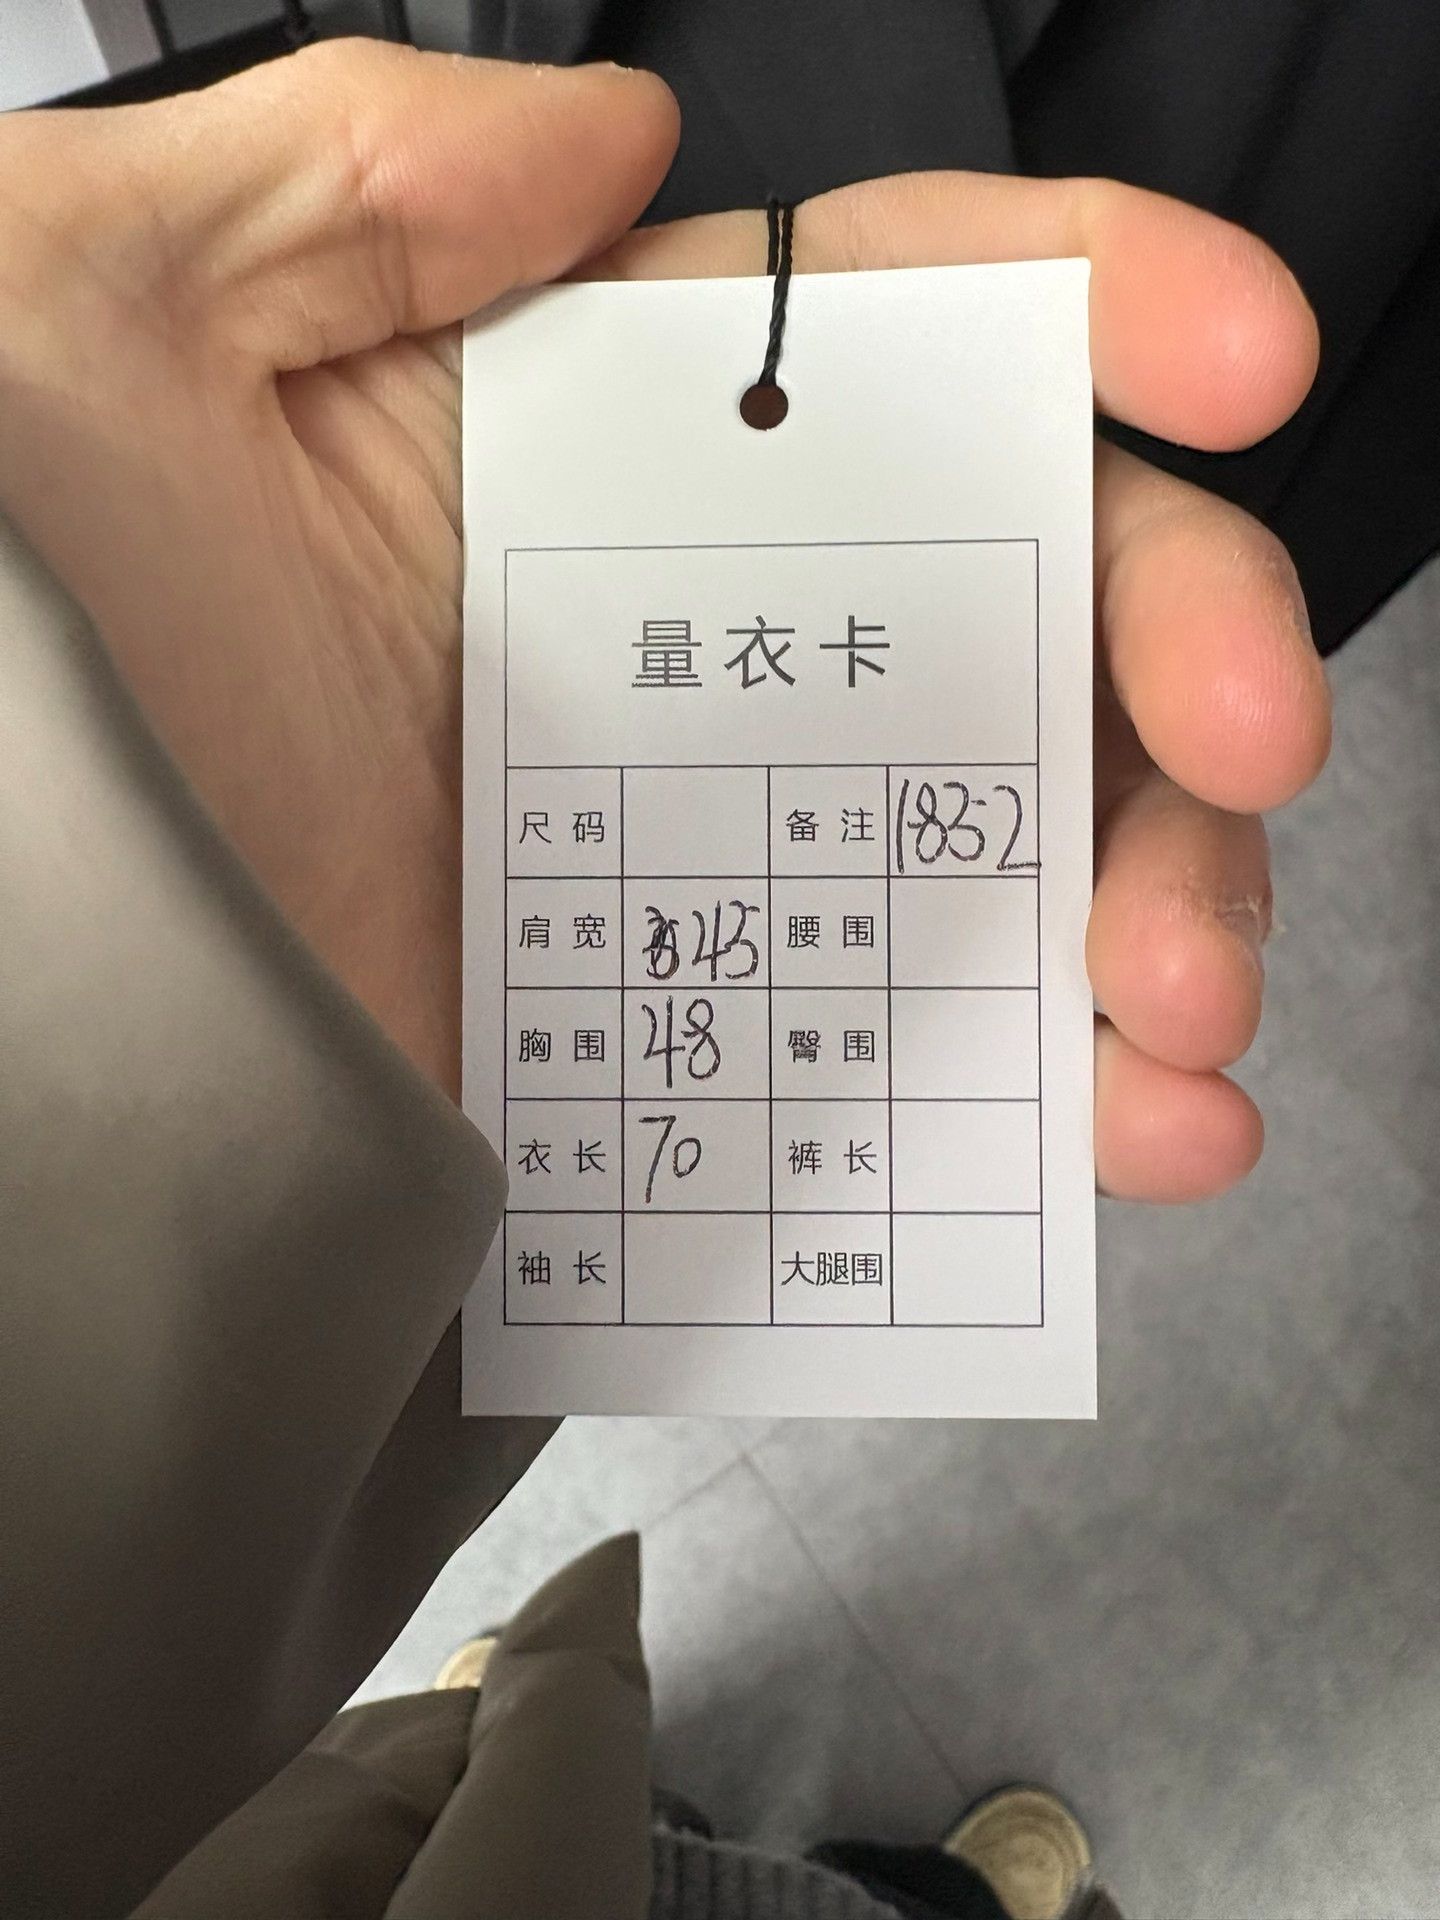 量衣卡
尺码 备注 1832
肩宽 45 腰围
胸围 48 臀围
衣长 70 裤长
袖长 大腿围